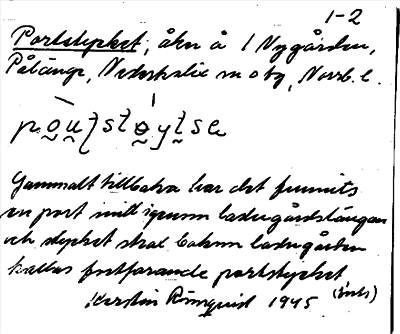 1-2
Portstycket, åker å 1 Nygården,
Pålänge, Nederkalix sn o tg, Norrb. l.
Gammalt tillbaka har det funnits
en port mitt igenom ladugårdslängan
och stycket strax bakom ladugården
kallas fortfarande portstycket
(best)
Kerstin 1945